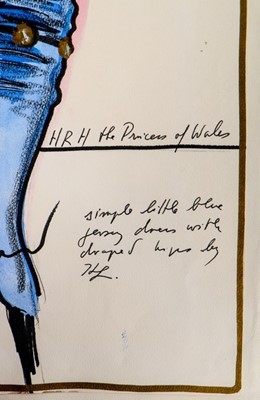 HRH the Princess of Wales
simple little blue
jersey dress with
draped hips by
KL.